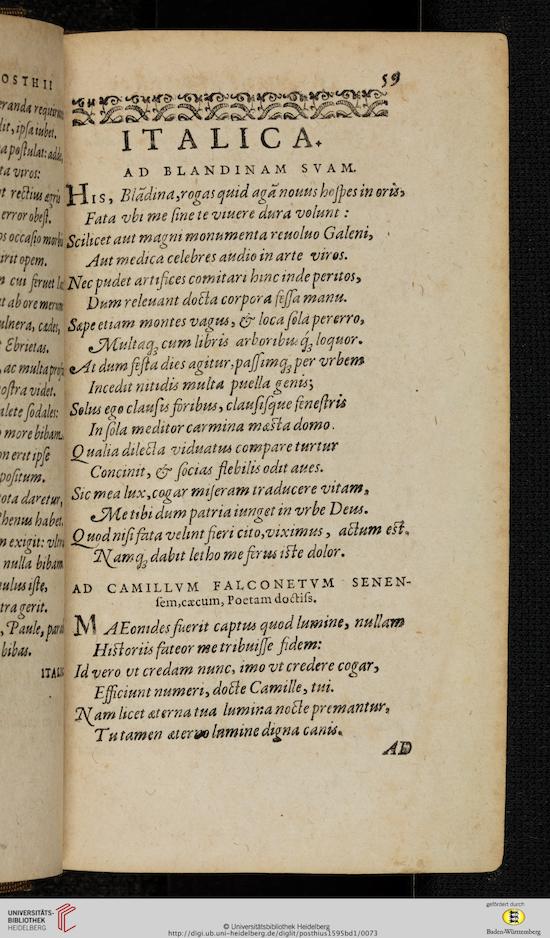 OSTHII
lit, ipsa iubet.
ta viros:
error obest.
irit opem.
Ebrietas.
ostra videt.
more bibam.
positum.
nulla bibam
tra gerit.
bibas.
59
ITALICA.
AD BLANDINAM SVAM.
HIS, Blādina, rogas quid agā nouus hospes in oris,
Fata vbi me sine te viuere dura volunt:
Scilicet aut magni monumenta reuoluo Galeni,
Aut medica celebres audio in arte viros.
Nec pudet artifices comitari hinc inde peritos,
Dum releuant docta corpora fessa manu.
Sæpe etiam montes vagus, & loca sola pererro,
Multaq́; cum libris arboribusq́; loquor.
At dum festa dies agitur, passimq́; per vrbem
Incedit nitidis multa puella genis;
Solus ego clausis foribus, clausisque fenestris
In sola meditor carmina mæsta domo.
Qualia dilecta viduatus compare turtur
Concinit, & socias flebilis odit aues.
Sic mea lux, cogar miseram traducere vitam,
Me tibi dum patria iunget in vrbe Deus.
Quod nisi fata velint fieri cito, viximus, actum est,
Namq́; dabit letho me ferus iste dolor.
AD CAMILLVM FALCONETVM SENEN-
sem, cæcum, Poetam doctiss.
MAEonides fuerit captus quod lumine, nullam
Historiis fateor me tribuisse fidem:
Id vero vt credam nunc, imo vt credere cogar,
Efficiunt numeri, docte Camille, tui.
Nam licet æterna tua lumina nocte premantur,
Tu tamen æterno lumine digna canis.
AD
UNIVERSITÄTS-
BIBLIOTHEK
HEIDELBERG
© Universitätsbibliothek Heidelberg
http://digi.ub.uni-heidelberg.de/diglit/posthius1595bd1/0073
gefördert durch
Baden-Württemberg